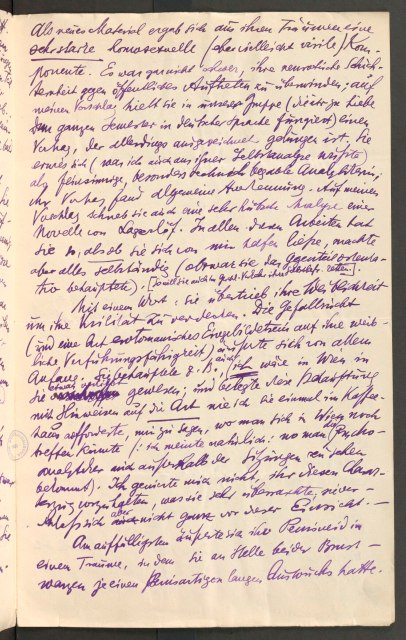 Als neues Material ergab sich aus ihren Träumen eine
sehr starke homosexuelle (oder vielleicht virile) Kom-
ponente. Es war garnicht schwer, ihre neurotische Schüch-
ternheit gegen öffentliches Auftreten zu überwinden; auf
meinen Vorschlag hielt sie in unserer Gruppe (die ihr zu Liebe
den ganzen Semester in deutscher Sprache fungiert) einen
Vortrag, der allerdings ausgezeichnet gelungen ist. Sie
erwies sich (was ich auch aus ihrer Selbstanalyse wußte)
als feinsinnige, besonders technisch begabte Analytikerin;
ihr Vortrag fand allgemeine Anerkennung. Auf meinen
Vorschlag schrieb sie auch eine sehr hübsche Analyse einer
Novelle von Lagerlöf. In allen diesen Arbeiten hat
sie so, als ob sie sich von mir helfen ließe, machte
aber alles selbständig (obzwar sie das Gegenteil
behauptete).
Mit einem Wort: sie übertrieb ihre Weiblichkeit
um ihre Virilität zu verdecken. Die Gefallsucht
(und eine Art erotomanisches Eingebildetsein auf ihre weib-
liche Verführungsfähigkeit) äußerte sich vor allem
Anfang; sie behauptete z. B. auch, ich wäre in Wien in
sie etwas verliebt gewesen; und belegte diese Behauptung
mit Hinweisen auf die Art wie ich sie einmal im Kaffee-
haus aufforderte, mir zu sagen, wo man sich in Wien noch
treffen könnte (: ich meinte natürlich: wo man die Psycho-
analytiker auch außerhalb der Sitzungen zu sehen
bekommt). Ich genierte mich nicht, ihr diesen Charak-
terzug vorzuhalten, was sie sehr überraschte,
verschloß sich aber nicht ganz vor dieser Einsicht. —
Am auffälligsten äußerte sich ihr Penisneid in
einem Traume, in dem sie an Stelle beider Brust-
warzen je einen penisartigen langen Auswuchs hatte.